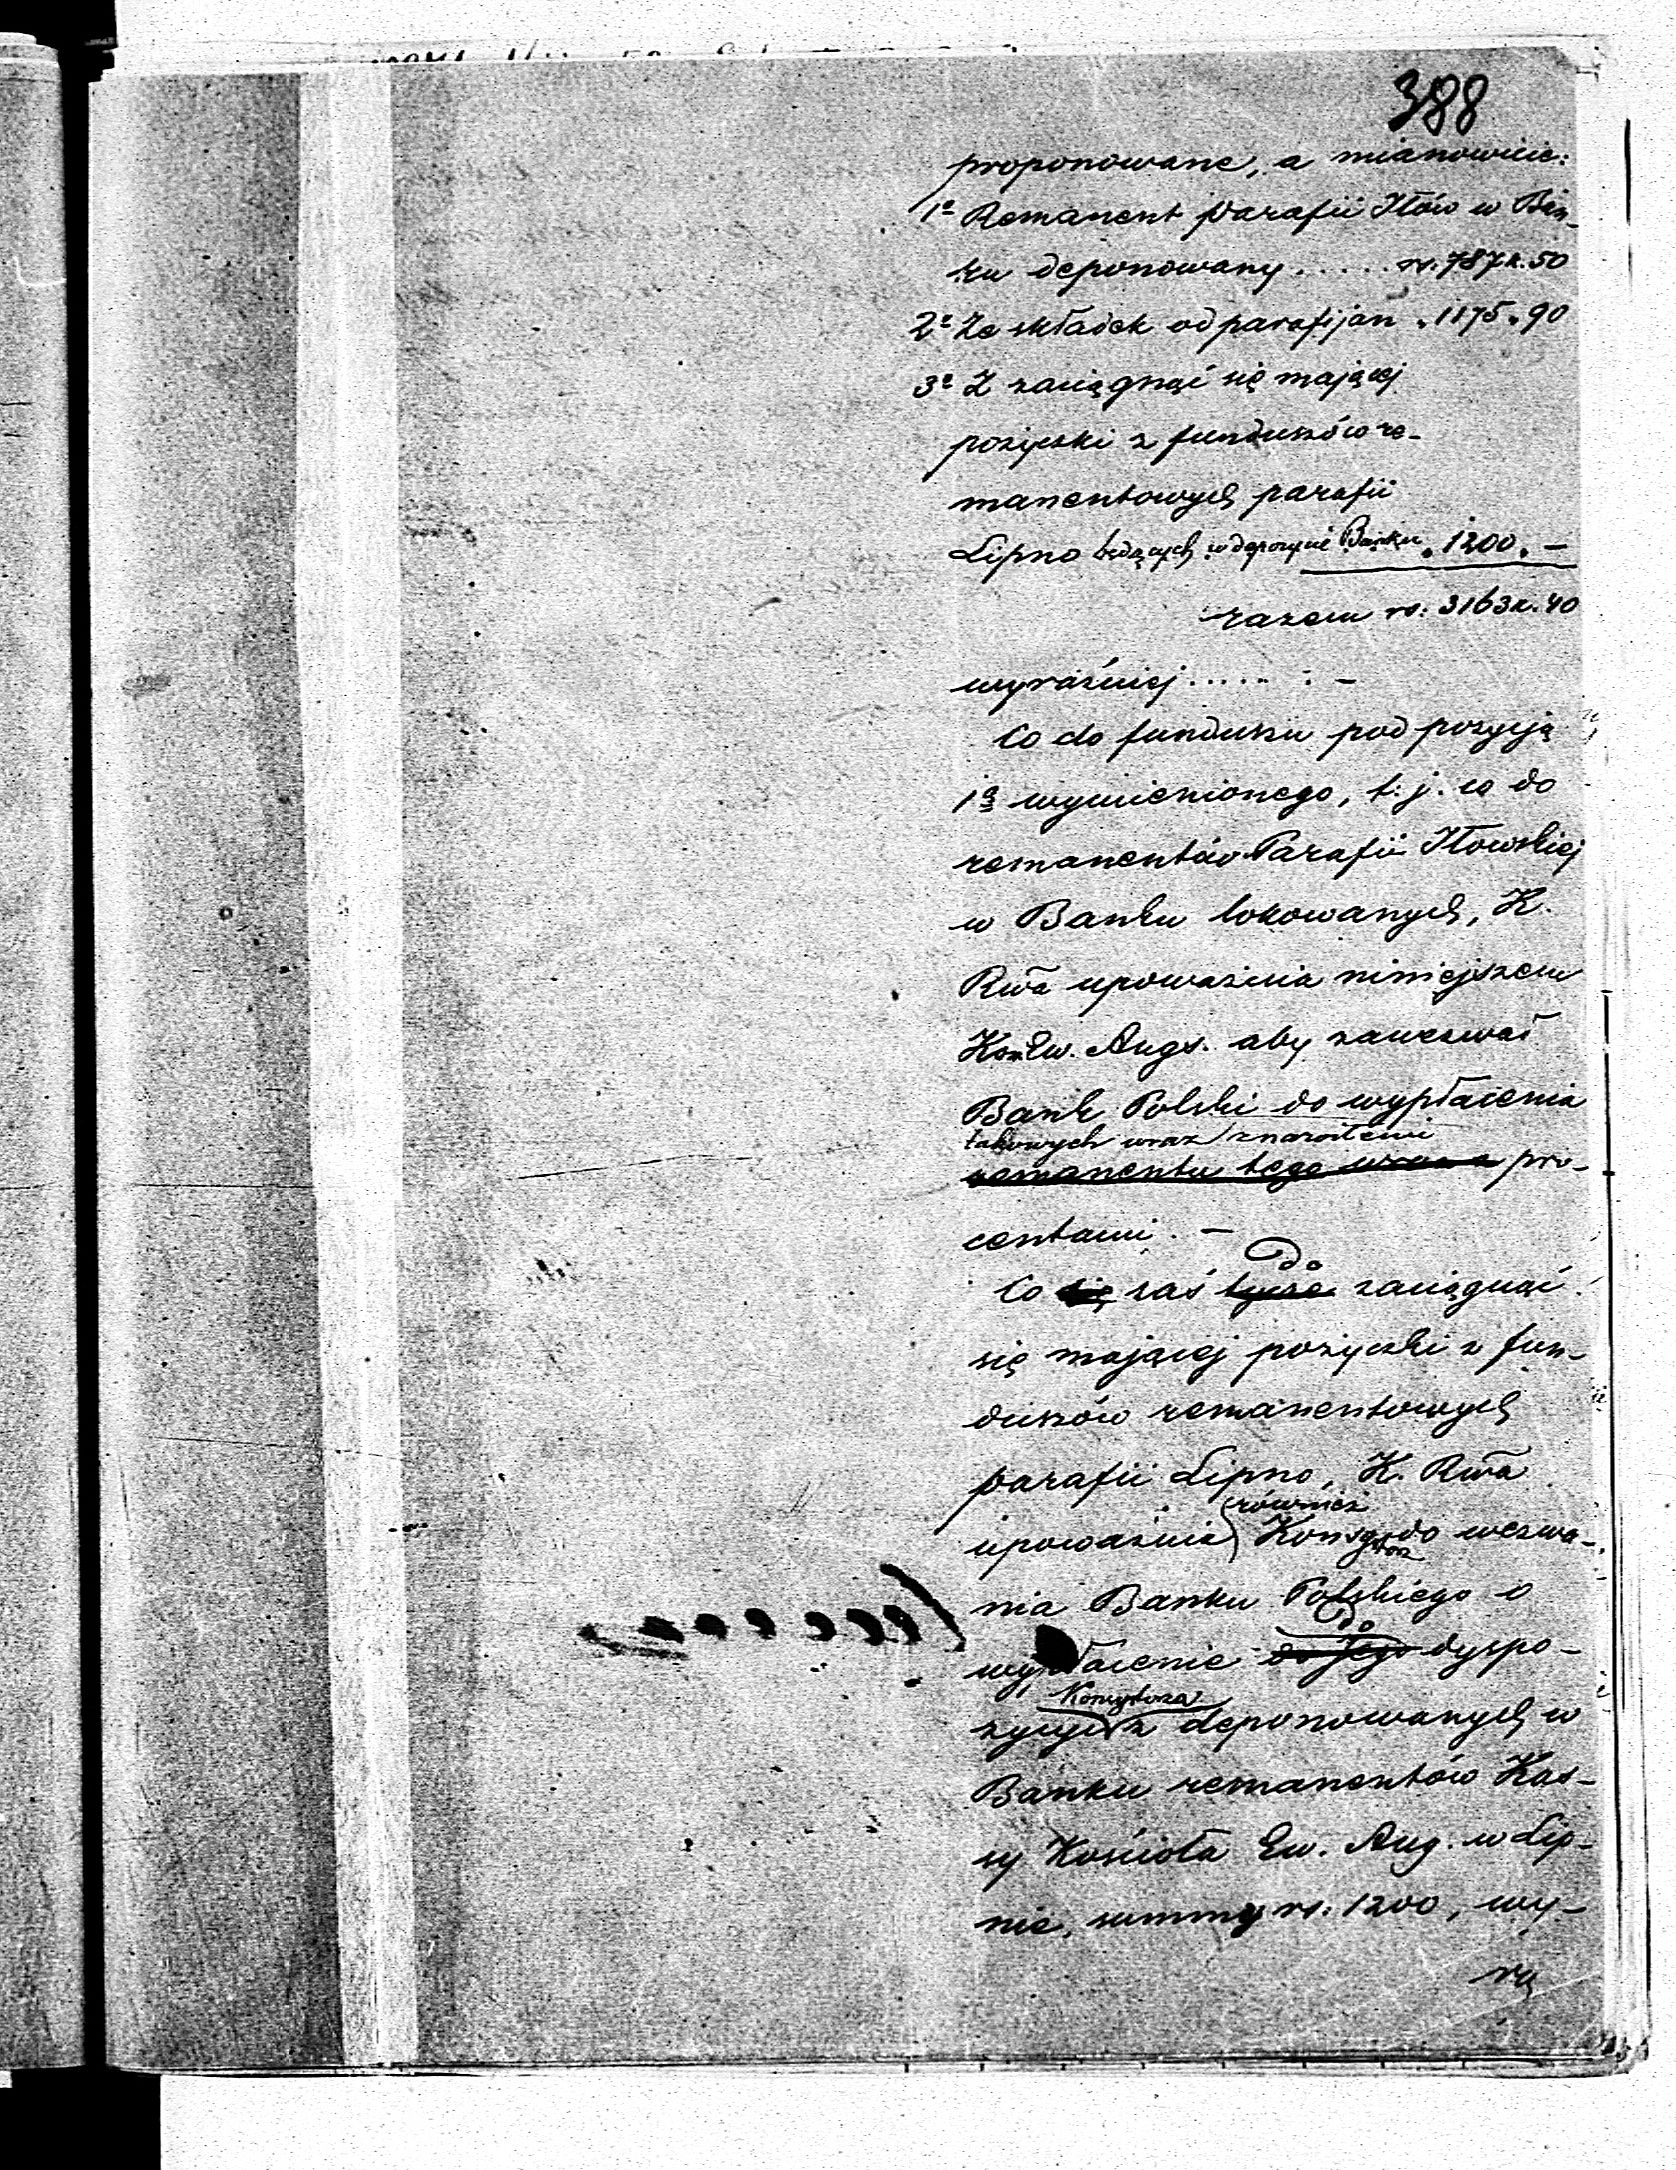 388
proponowane, a mianowicie:
1º Remanent parafii Iłów w Ban-
ku deponowany . . . . . rs. 787 k. 50
2º Ze składek od parafijan „ 1175 „ 90
3º Z zaciągnąć się mającej
pożyczki z funduszów re-
manentowych parafii
Lipno będących w depozycie Banku „ 1200 „ —
razem rs: 3163 k. 40
wyraźniej . . . . . : —
Co do funduszu pod pozycją
1ą wymienionego, t: j. co do
remanentów Parafii Iłowskiej
w Banku lokowanych, K.
Rwa upoważnia niniejszem
Kon Ew. Augs. aby zawezwał
Bank Polski do wypłacenia
takowych wraz z narosłemi
remanentu tego wraz z pro-
centami. —
do
Co się zaś tycze zaciągnąć
się mającej pożyczki z fun-
duszów remanentowych
parafii Lipno, K. Rwa
również
upoważnia Konsystorz do wezwa-
nia Banku Polskiego o
do
wypłacenie do Jego dyspo-
Konsystorza
zycyi z deponowanych w
Banku remanentów Kas-
sy Kościoła Ew. Aug. w Lip-
nie, summy rs: 1200, wy-
rą